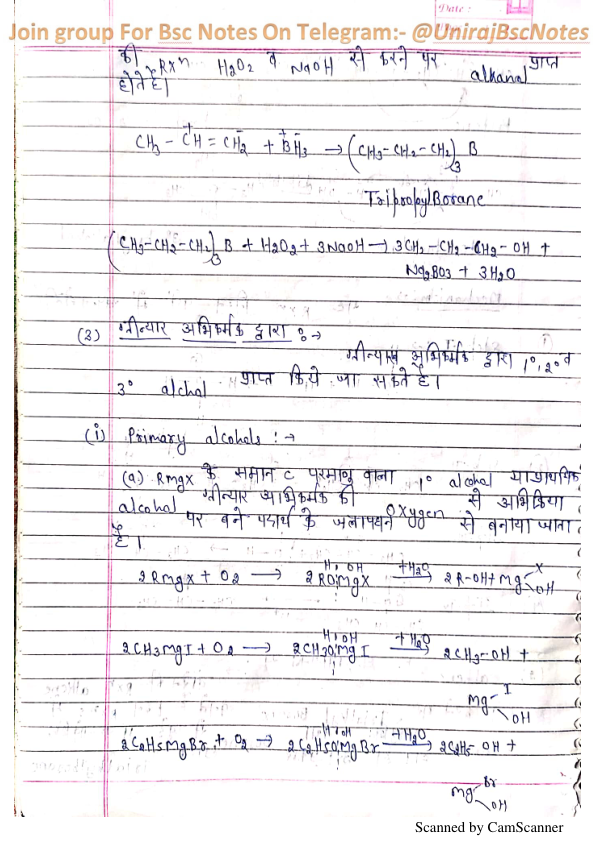 Date :
Join group For Bsc Notes On Telegram:- @UnirajBscNotes
की Rxⁿ H₂O₂ व NaOH से करने पर alkanal प्राप्त
होते है।
CH₃ – CH⁺ = CH₂⁻ + B⁺H₃⁻ → (CH₃–CH₂–CH₂)₃ B
TripropylBorane
(CH₃–CH₂–CH₂)₃ B + H₂O₂ + 3NaOH → 3CH₂–CH₂–CH₂–OH +
Na₂BO₃ + 3H₂O
(3) ग्रीन्यार अभिकर्मक द्वारा :→
ग्रीन्यार अभिकर्मक द्वारा 1°, 2° व
3° alchal प्राप्त किये जा सकते है।
(i) Primary alcohals :→
(a) Rmgx के समान C परमाणु वाला 1° alcohal या प्राथमिक
alcohal ग्रीन्यार अभिकर्मक की oxygen से अभिक्रिया
पर बने पदार्थ के जलापघटन से बनाया जाता
है।
H OH
2Rmgx + O₂ → 2ROMgX +H₂O → 2R–OH + Mg X OH
H OH
2CH₃MgI + O₂ → 2CH₃OMgI +H₂O → 2CH₃–OH +
Mg I OH
H OH
2C₂H₅MgBr + O₂ → 2C₂H₅OMgBr +H₂O → 2C₂H₅–OH +
mg Br OH
Scanned by CamScanner